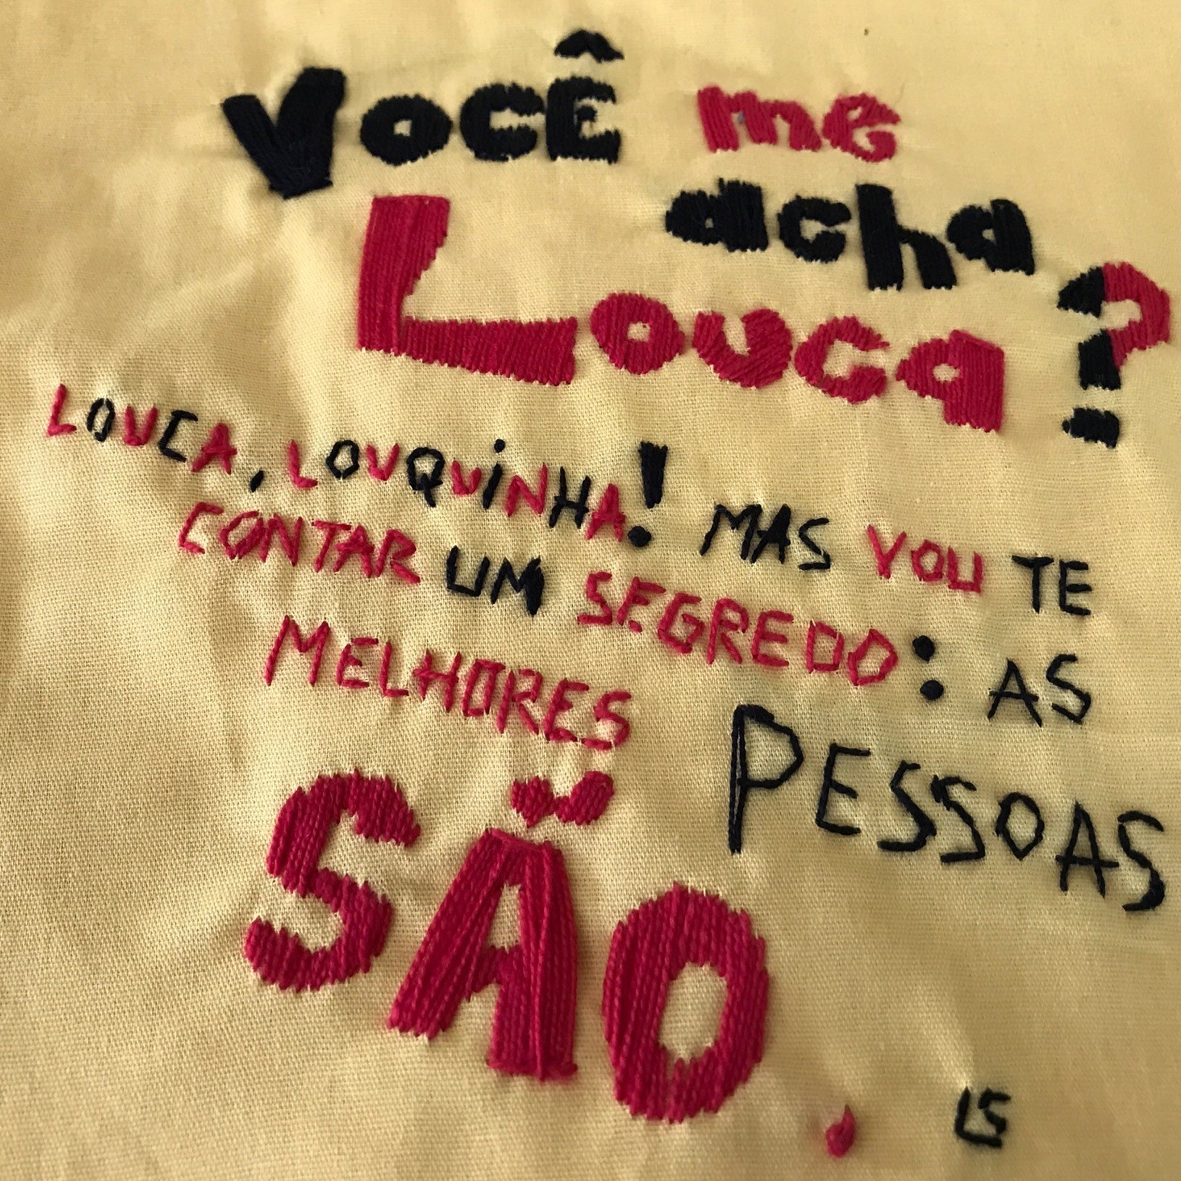 VOCÊ me
acha
Louca?
LOUCA, LOUQUINHA! MAS VOU TE
CONTAR UM SEGREDO: AS
MELHORES
PESSOAS
SÃO.
LS